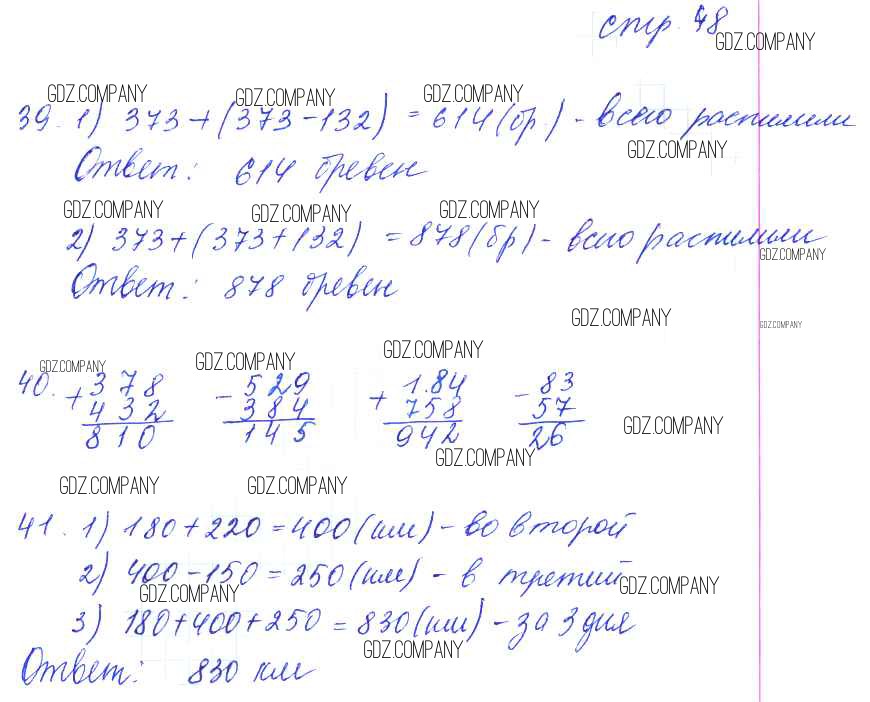 стр. 48
GDZ.COMPANY
GDZ.COMPANY GDZ.COMPANY GDZ.COMPANY
39. 1) 373 + (373 - 132) = 614 (бр.) - всего распилили
GDZ.COMPANY
Ответ: 614 бревен
GDZ.COMPANY GDZ.COMPANY GDZ.COMPANY
2) 373 + (373 + 132) = 878 (бр) - всего распилили
GDZ.COMPANY
Ответ: 878 бревен
GDZ.COMPANY GDZ.COMPANY
GDZ.COMPANY GDZ.COMPANY GDZ.COMPANY
40. + 378 - 529 + 184 - 83
432 384 758 57
810 145 942 26
GDZ.COMPANY
GDZ.COMPANY
GDZ.COMPANY GDZ.COMPANY
41. 1) 180 + 220 = 400 (км) - во второй
2) 400 - 150 = 250 (км) - в третий
GDZ.COMPANY GDZ.COMPANY
3) 180 + 400 + 250 = 830 (км) - за 3 дня
GDZ.COMPANY
Ответ: 830 км